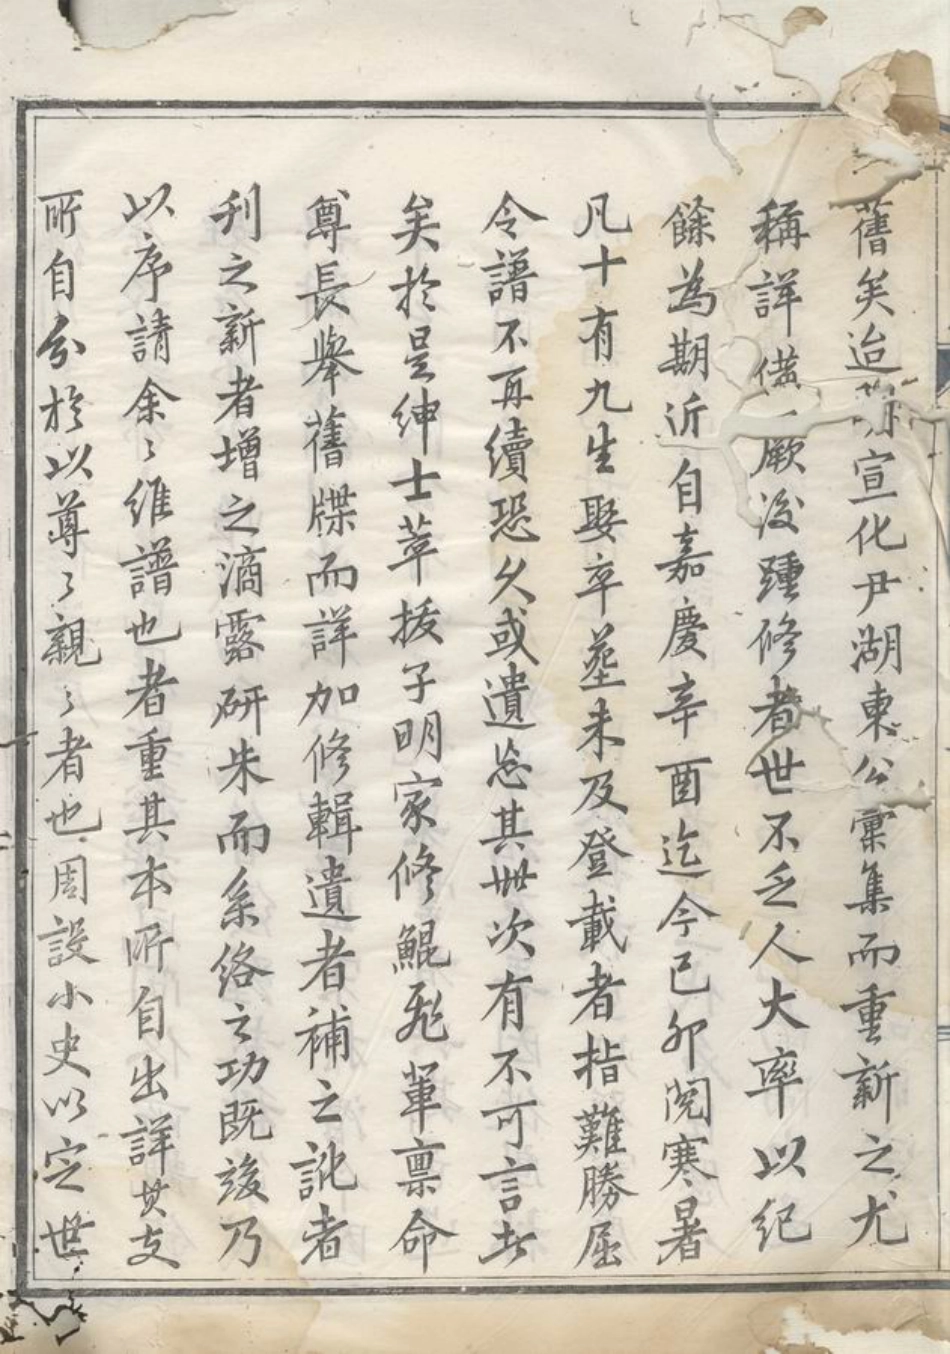 舊矣迨明宣化尹湖東公彙集而重新之尤
稱詳備厥後踵修者世不乏人大率以紀
餘為期近自嘉慶辛酉迄今己卯閱寒暑
凡十有九生娶卒塟未及登載者指難勝屈
令譜不再續恐久或遺忘其世次有不可言者
矣於是紳士萃拔子明家修鯤飛軍禀命
尊長舉舊牒而詳加修輯遺者補之訛者
刊之新者增之滴露研朱而系絡之功既竣乃
以序請余〻維譜也者重其本所自出詳其支
所自分於以尊〻親〻者也周設小史以定世